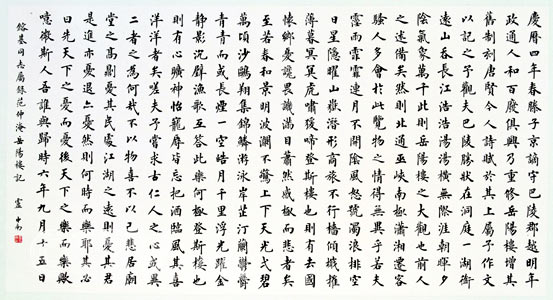 慶曆四年春滕子京謫守巴陵郡越明年
政通人和百廢俱興乃重修岳陽樓增其
舊制刻唐賢今人詩賦於其上屬予作文
以記之予觀夫巴陵勝狀在洞庭一湖銜
遠山吞長江浩浩湯湯橫無際涯朝暉夕
陰氣象萬千此則岳陽樓之大觀也前人
之述備矣然則北通巫峽南極瀟湘遷客
騷人多會於此覽物之情得無異乎若夫
霪雨霏霏連月不開陰風怒號濁浪排空
日星隱曜山嶽潛形商旅不行檣傾楫摧
薄暮冥冥虎嘯猿啼登斯樓也則有去國
懷鄉憂讒畏譏滿目蕭然感極而悲者矣
至若春和景明波瀾不驚上下天光一碧
萬頃沙鷗翔集錦鱗游泳岸芷汀蘭鬱鬱
青青而或長煙一空皓月千里浮光躍金
靜影沉璧漁歌互答此樂何極登斯樓也
則有心曠神怡寵辱皆忘把酒臨風其喜
洋洋者矣嗟夫予嘗求古仁人之心或異
二者之為何哉不以物喜不以己悲居廟
堂之高則憂其民處江湖之遠則憂其君
是進亦憂退亦憂然則何時而樂耶其必
曰先天下之憂而憂後天下之樂而樂歟
噫微斯人吾誰與歸時六年九月十五日
鎔基同志屬錄范仲淹岳陽樓記